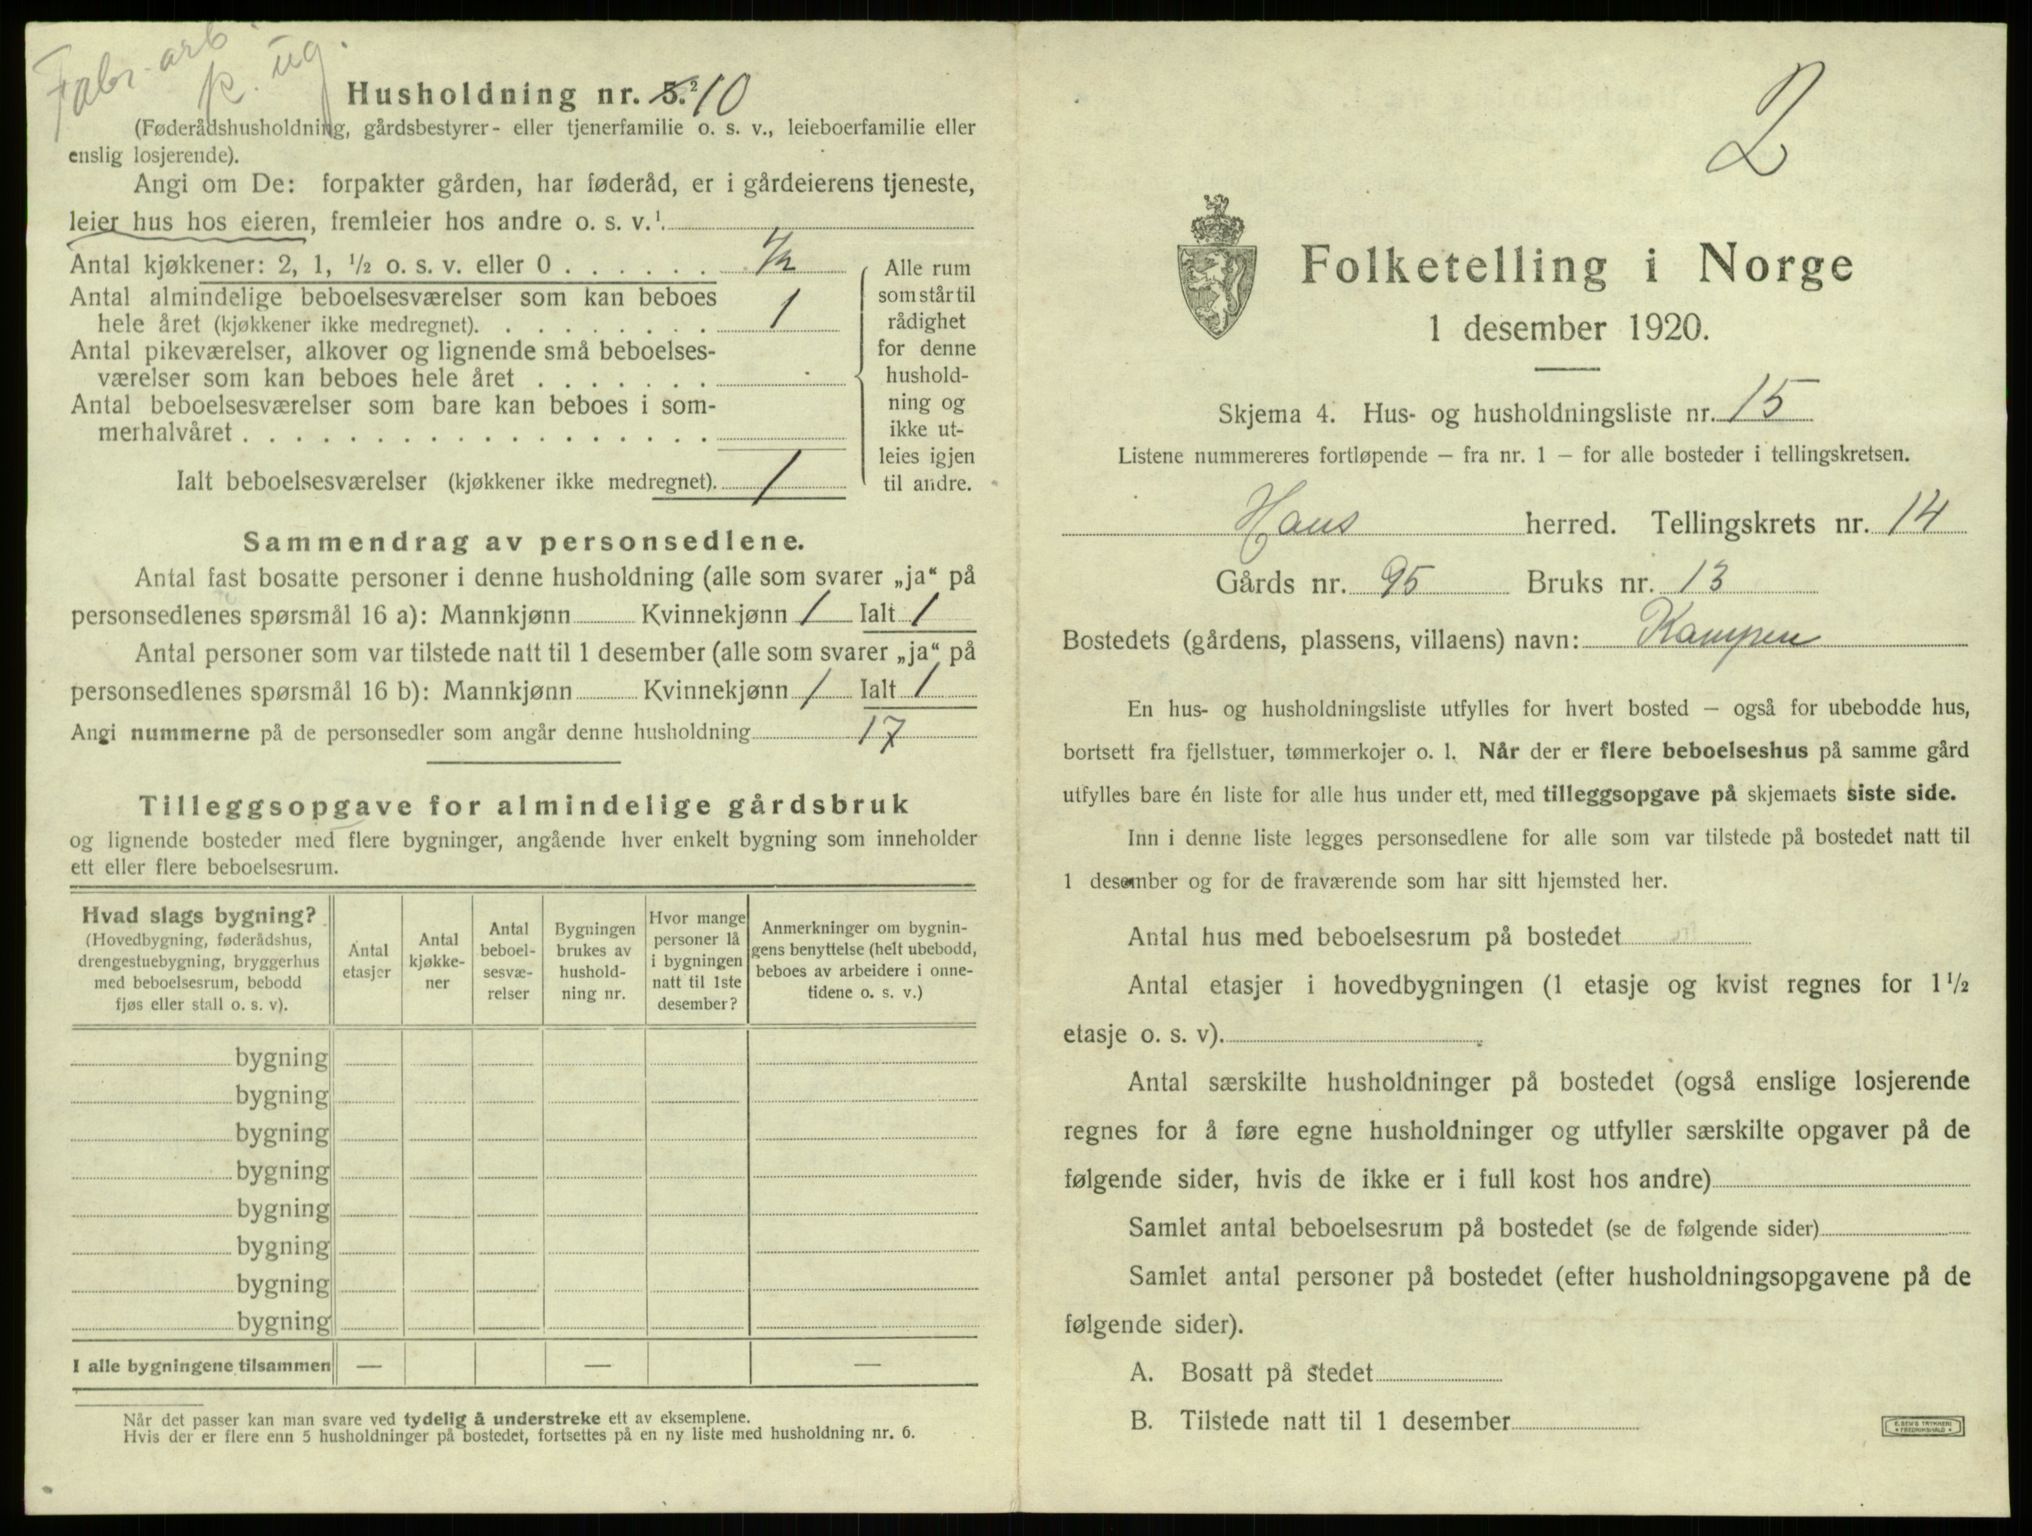 Fabr. arb.
k. ug.
Husholdning nr. 5.² 10
(Føderådshusholdning, gårdsbestyrer- eller tjenerfamilie o. s. v., leieboerfamilie eller
enslig losjerende).
Angi om De: forpakter gården, har føderåd, er i gårdeierens tjeneste,
leier hus hos eieren, fremleier hos andre o. s. v.¹
Antal kjøkkener: 2, 1, ½ o. s. v. eller 0 . . . . . . ½
Antal almindelige beboelsesværelser som kan beboes
hele året (kjøkkener ikke medregnet). . . . . . . . . 1
Antal pikeværelser, alkover og lignende små beboelses-
værelser som kan beboes hele året . . . . . . .
Antal beboelsesværelser som bare kan beboes i som-
merhalvåret . . . . . . . . . . . . . . . . . .
Ialt beboelsesværelser (kjøkkener ikke medregnet). 1
Alle rum
som står til
rådighet
for denne
hushold-
ning og
ikke ut-
leies igjen
til andre.
Sammendrag av personsedlene.
Antal fast bosatte personer i denne husholdning (alle som svarer „ja“ på
personsedlenes spørsmål 16 a): Mannkjønn Kvinnekjønn 1 Ialt 1
Antal personer som var tilstede natt til 1 desember (alle som svarer „ja“ på
personsedlenes spørsmål 16 b): Mannkjønn Kvinnekjønn 1 Ialt 1
Angi nummerne på de personsedler som angår denne husholdning 17
Tilleggsopgave for almindelige gårdsbruk
og lignende bosteder med flere bygninger, angående hver enkelt bygning som inneholder
ett eller flere beboelsesrum.
Hvad slags bygning?
(Hovedbygning, føderådshus,
drengestuebygning, bryggerhus
med beboelsesrum, bebodd
fjøs eller stall o. s. v).
Antal
etasjer
Antal
kjøkke-
ner
Antal
beboel-
sesvæ-
relser
Bygningen
brukes av
hushold-
ning nr.
Hvor mange
personer lå
i bygningen
natt til 1ste
desember?
Anmerkninger om bygnin-
gens benyttelse (helt ubebodd,
beboes av arbeidere i onne-
tidene o. s. v.)
bygning
bygning
bygning
bygning
bygning
bygning
bygning
bygning
I alle bygningene tilsammen — — —
Når det passer kan man svare ved tydelig å understreke ett av eksemplene.
Hvis der er flere enn 5 husholdninger på bostedet, fortsettes på en ny liste med husholdning nr. 6.
2
Folketelling i Norge
1 desember 1920.
Skjema 4. Hus- og husholdningsliste nr. 15
Listene nummereres fortløpende – fra nr. 1 – for alle bosteder i tellingskretsen.
Haus herred. Tellingskrets nr. 14
Gårds nr. 95 Bruks nr. 13
Bostedets (gårdens, plassens, villaens) navn: Kampen
En hus- og husholdningsliste utfylles for hvert bosted – også for ubebodde hus,
bortsett fra fjellstuer, tømmerkojer o. l. Når der er flere beboelseshus på samme gård
utfylles bare én liste for alle hus under ett, med tilleggsopgave på skjemaets siste side.
Inn i denne liste legges personsedlene for alle som var tilstede på bostedet natt til
1 desember og for de fraværende som har sitt hjemsted her.
Antal hus med beboelsesrum på bostedet
Antal etasjer i hovedbygningen (1 etasje og kvist regnes for 1½
etasje o. s. v).
Antal særskilte husholdninger på bostedet (også enslige losjerende
regnes for å føre egne husholdninger og utfyller særskilte opgaver på de
følgende sider, hvis de ikke er i full kost hos andre)
Samlet antal beboelsesrum på bostedet (se de følgende sider)
Samlet antal personer på bostedet (efter husholdningsopgavene på de
følgende sider).
A. Bosatt på stedet
B. Tilstede natt til 1 desember
E. SEM'S TRYKKERI
FREDRIKSHALD